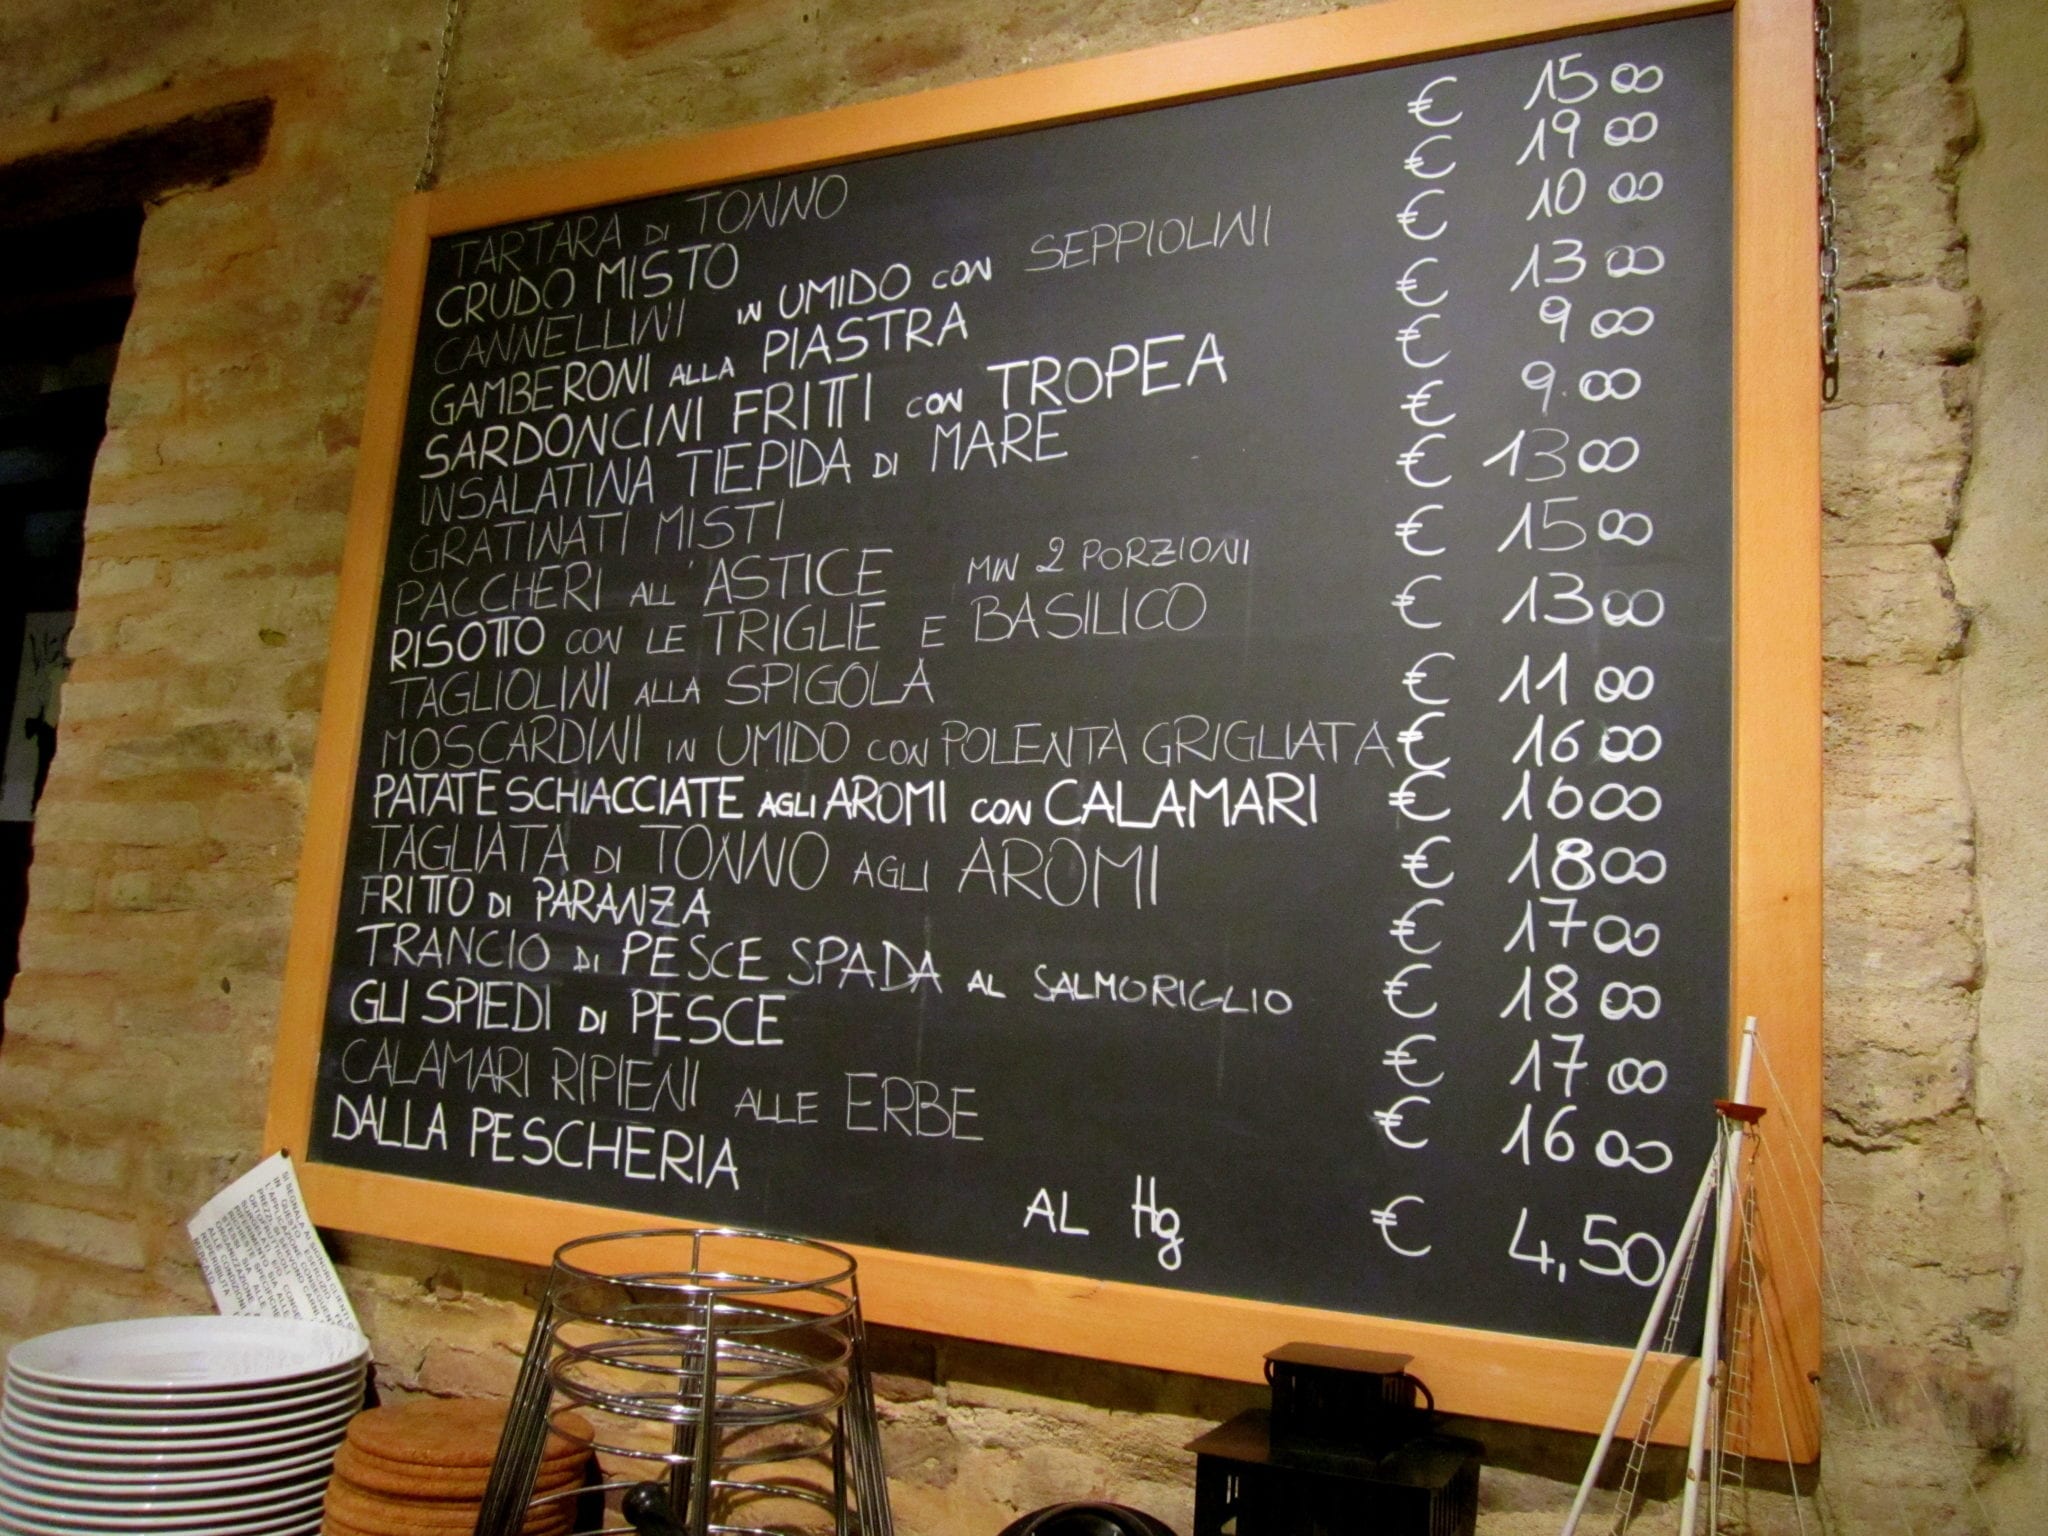 TARTARA DI TONNO € 15 00
CRUDO MISTO € 19 00
CANNELLINI IN UMIDO CON SEPPIOLINI € 10 00
GAMBERONI ALLA PIASTRA € 13 00
SARDONCINI FRITTI CON TROPEA € 9 00
INSALATINA TIEPIDA DI MARE € 9.00
GRATINATI MISTI € 13 00
PACCHERI ALL'ASTICE MIN 2 PORZIONI € 15 00
RISOTTO CON LE TRIGLIE E BASILICO € 13 00
TAGLIOLINI ALLA SPIGOLA € 11 00
MOSCARDINI IN UMIDO CON POLENTA GRIGLIATA € 16 00
PATATE SCHIACCIATE AGLI AROMI CON CALAMARI € 16 00
TAGLIATA DI TONNO AGLI AROMI € 18 00
FRITTO DI PARANZA € 17 00
TRANCIO DI PESCE SPADA AL SALMORIGLIO € 18 00
GLI SPIEDI DI PESCE € 17 00
CALAMARI RIPIENI ALLE ERBE € 16 00
DALLA PESCHERIA AL Hg € 4,50
SI SEGNALA AI SIGNORI CLIENTI